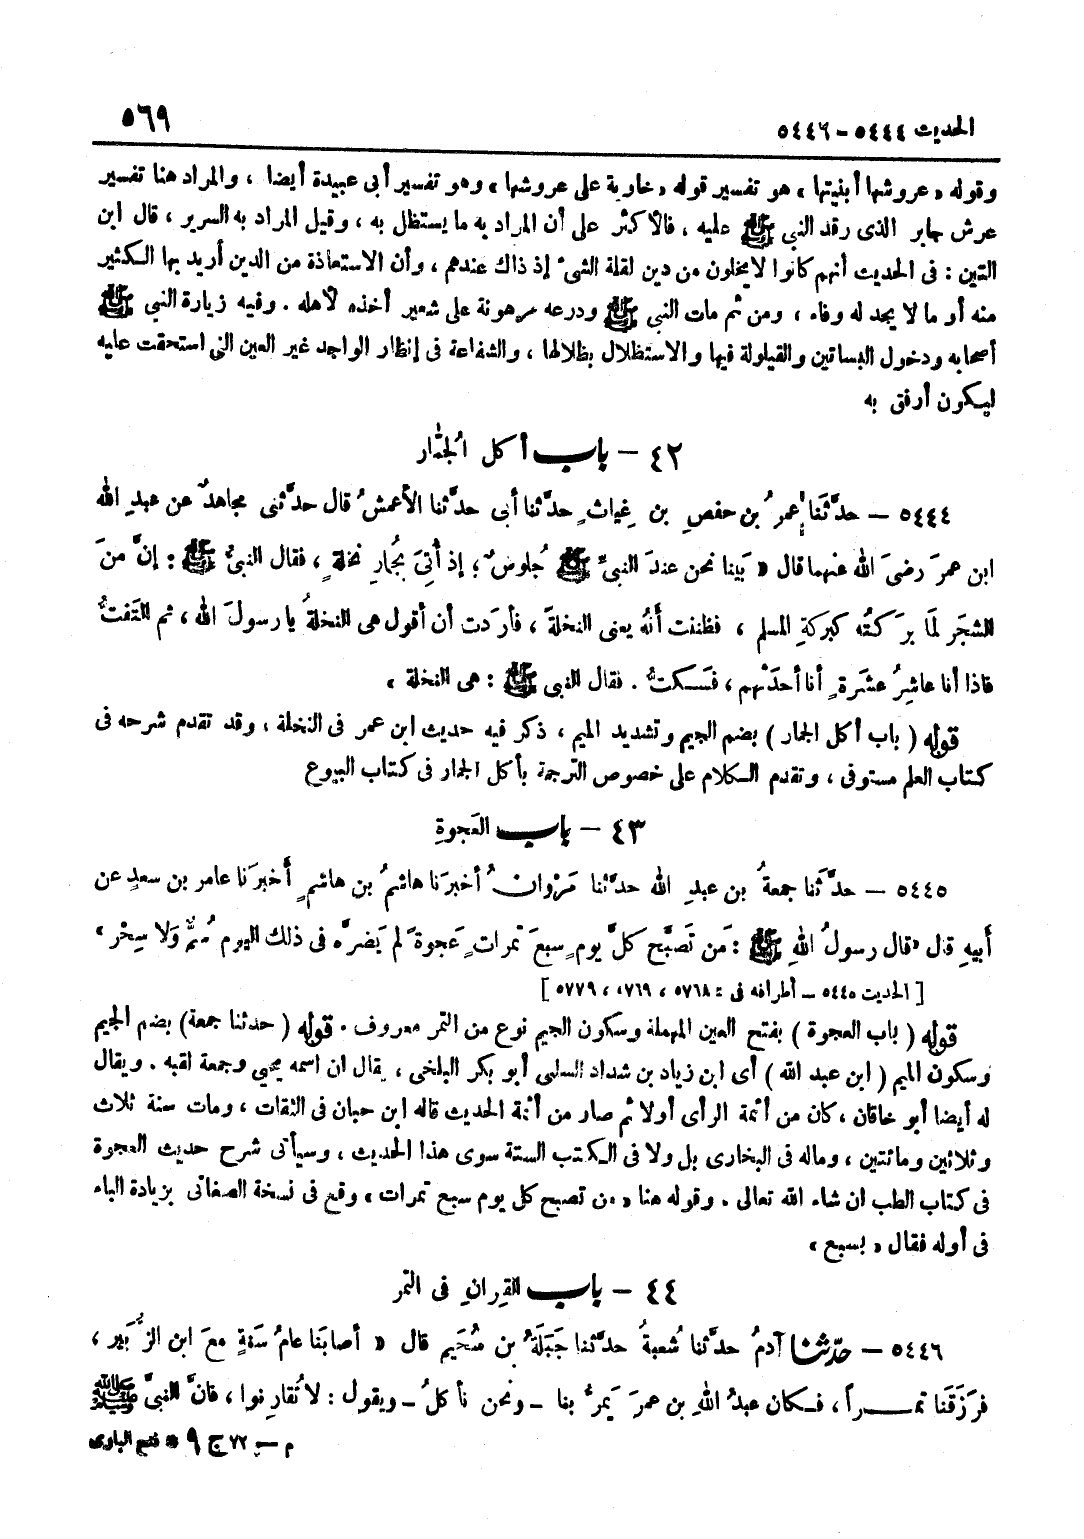 الحديث ٥٤٤٤ - ٥٤٤٦
٥٦٩
وقوله « عروشها أبنيتها » هو تفسير قوله « خاوية على عروشها » وهو تفسير أبى عبيدة أيضا ، والمراد هنا تفسير
عرش جابر الذى رقد النبى ﷺ عليه ، فالأكثر على أن المراد به ما يستظل به ، وقيل المراد به السرير ، قال ابن
التين : فى الحديث أنهم كانوا لا يخلون من دين لقلة الشىء إذ ذاك عندهم ، وأن الاستعاذة من الدين أريد بها الكثير
منه أو ما لا يجد له وفاء ، ومن ثم مات النبى ﷺ ودرعه مرهونة على شعير أخذه لأهله . وفيه زيارة النبى ﷺ
أصحابه ودخول البساتين والقيلولة فيها والاستظلال بظلالها ، والشفاعة فى إنظار الواجد غير العين التى استحقت عليه
ليكون أرفق به
٤٢ - باب أكل الجُمَّار
٥٤٤٤ - حدَّثَنا عمرُ بن حفصِ بن غِياثٍ حدَّثنا أبى حدَّثنا الأعمشُ قال حدَّثنى مجاهدٌ عن عبدِ الله
ابن عمرَ رضىَ الله عنهما قال « بَينا نحن عندَ النبىِّ ﷺ جُلوسٌ ؛ إذ أُتِىَ بجُمارِ نخلةٍ ، فقال النبىُّ ﷺ : إنَّ منَ
الشجَر لمَا برَكتُه كبركةِ المسلم ، فظننت أنهُ يعنى النخلةَ ، فأرَدت أن أقول هى النخلةُ يا رسولَ الله ، ثم التَفتُّ
فاذا أنا عاشِرُ عشَرةٍ أنا أحدَثهم ، فسَكتُّ . فقال النبى ﷺ : هى النخلة »
قوله ( باب أكل الجمار ) بضم الجيم وتشديد الميم ، ذكر فيه حديث ابن عمر فى النخلة ، وقد تقدم شرحه فى
كتاب العلم مستوفى ، وتقدم الكلام على خصوص الترجمة بأكل الجمار فى كتاب البيوع
٤٣ - باب العَجوةِ
٥٤٤٥ - حدَّثنا جمعةُ بن عبدِ الله حدَّثنا مَرْوانُ أخبرَنا هاشمُ بن هاشمٍ أخبرَنا عامر بن سعدٍ عن
أبيهِ قال «قال رسولُ اللهِ ﷺ : مَن تَصبَّح كلَّ يومٍ سبعَ تمراتٍ عَجوةً لم يَضرَّه فى ذلك اليوم سُمٌّ وَلا سِحْر »
[ الحديث ٥٤٤٥ - أطرافه فى : ٥٧٦٨ ، ٥٧٦٩ ، ٥٧٧٩ ]
قوله ( باب العجوة ) بفتح العين المهملة وسكون الجيم نوع من التمر معروف . قوله ( حدثنا جمعة ) بضم الجيم
وسكون الميم ( ابن عبد الله ) أى ابن زياد بن شداد السلمى أبو بكر البلخى ، يقال ان اسمه يحيى وجمعة لقبه . ويقال
له أيضا أبو خاقان ، كان من أئمة الرأى أولا ثم صار من أئمة الحديث قاله ابن حبان فى الثقات ، ومات سنة ثلاث
وثلاثين ومائتين ، وماله فى البخارى بل ولا فى الكتب الستة سوى هذا الحديث ، وسيأتى شرح حديث العجوة
فى كتاب الطب ان شاء الله تعالى . وقوله هنا « من تصبح كل يوم سبع تمرات » وقع فى نسخة الصغانى بزيادة الباء
فى أوله فقال « بسبع »
٤٤ - باب القِرانِ فى التمر
٥٤٤٦ - حدّثنا آدمُ حدَّثنا شُعبةُ حدَّثنا جَبَلَةُ بن سُحَيم قال « أصابَنا عامُ سَنةٍ معَ ابن الزُّبَير ،
فرَزَقَنا تمـــراً ، فكان عبدُ اللهِ بن عمرَ يَمرُّ بنا - ونحن نأكلُ - ويقول : لا تُقارِنوا ، فانَّ النبىَّ ﷺ
م - ٧٢ ج ٩ * فتح البارى